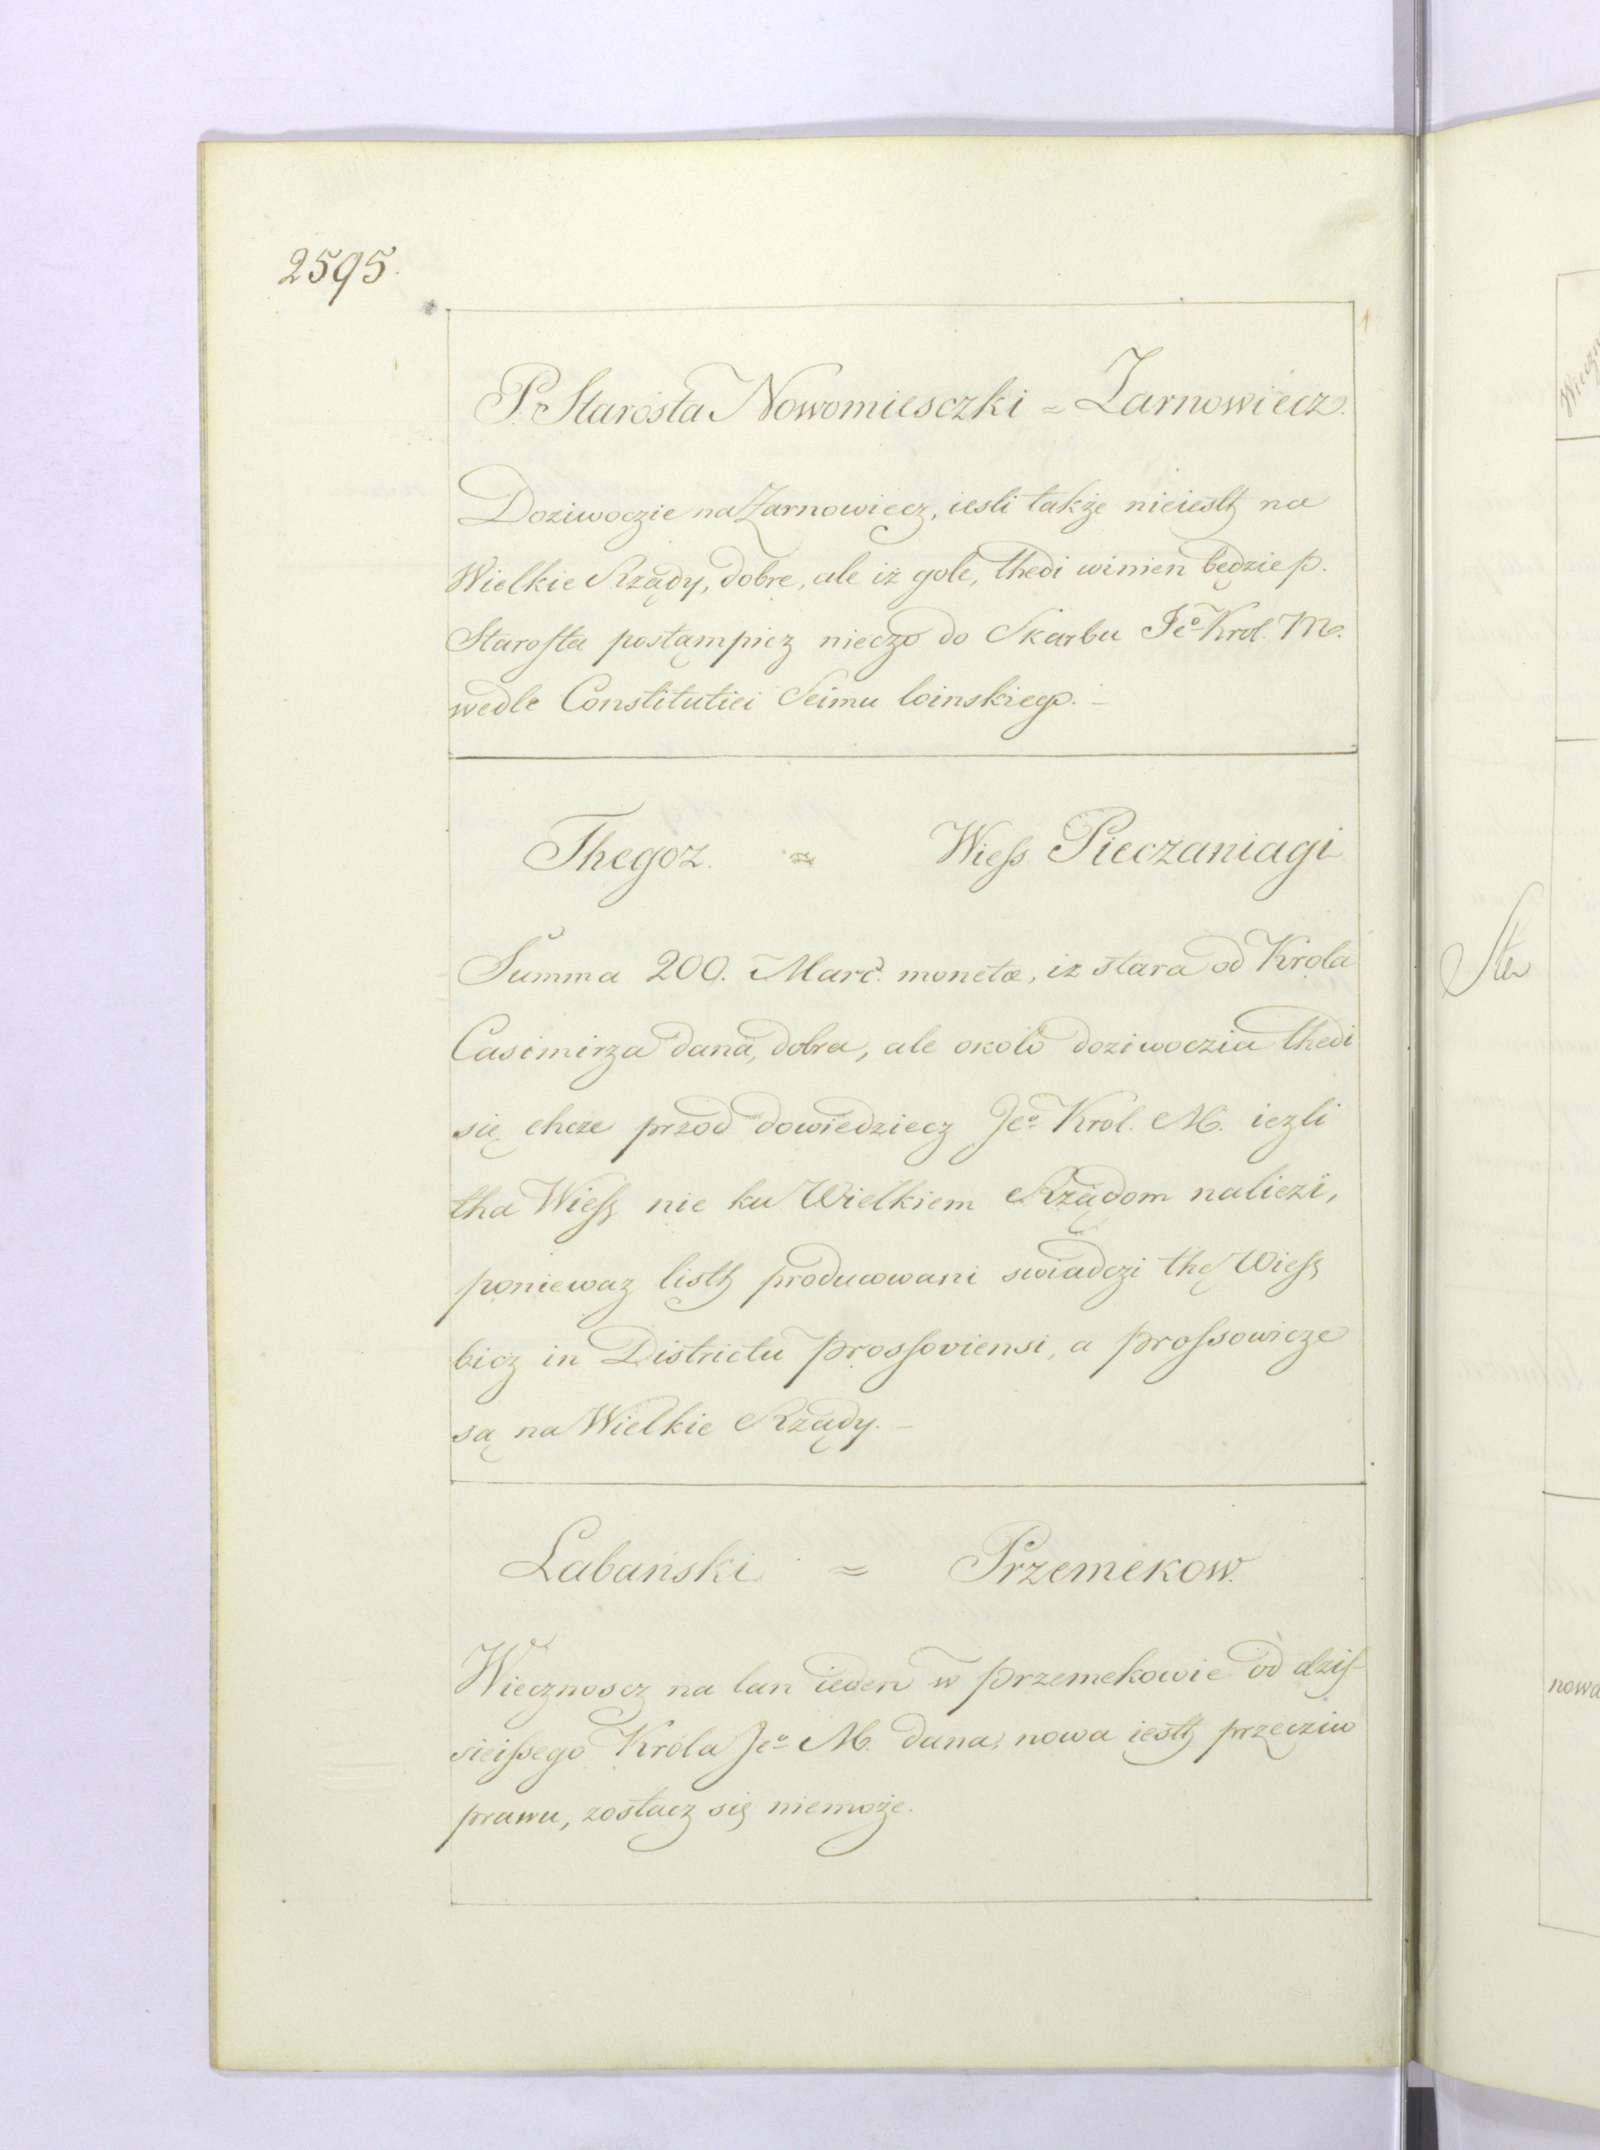 2595.
P. Starosta Nowomiesczki = Zarnowiecz.
Doziwoczie na Zarnowiecz, iesli także nieiesth na
Wielkie Rządy, dobre, ale iż gole, thedi winien będzie p.
Starosta postąmpicz nieczo do Skarbu Jeo Krol. M.
wedle Constitutiei Seimu
Thegoz. = Wiess Pieczaniagi
Summa 200. Marc. moneta, iz stara od Krola
Casimirza dana, dobra, ale około doziwoczia thedi
się chcze przod dowiedziecz Jeo Krol. M. iezli
tha Wiess nie ku Wielkiem Rządom naliezi,
poniewaz listh producowani swiadczi thę Wiess
bicz in Districtu prossoviensi, a prossowicze
są na Wielkie Rządy.
Labański = Przemekow.
Wiecznoscz na lan ieden w przemekowie od dzis-
sieissego Króla Jeo M. dana, nowa iesth przecziw
prawu, zostacz się niemoże.
nowa